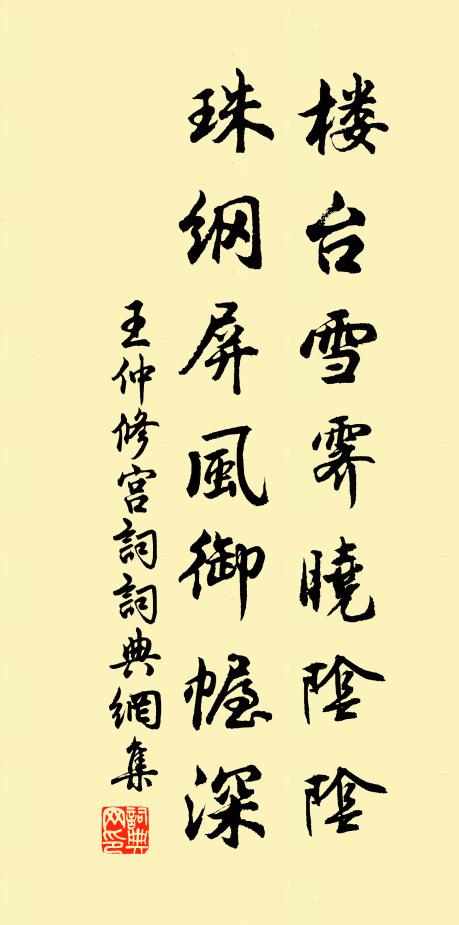 楼台雪霁曉陰陰
珠網屏風御幄深
王仲修宫詞詞典網集
詞典网印